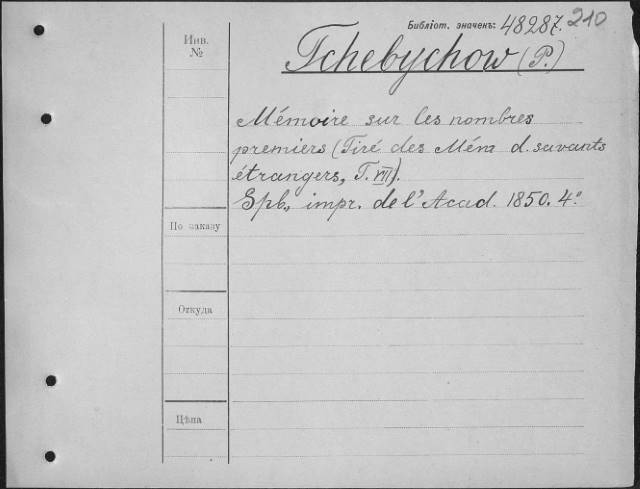 Библіот. значекъ: 48287. 210
Инв.
№
Tchebychow (P.)
Mémoire sur les nombres
premiers (Tiré des Mém d. savants
étrangers, T. VII).
Spb., impr. de l'Acad. 1850. 4°.
По заказу
Откуда
Цѣна